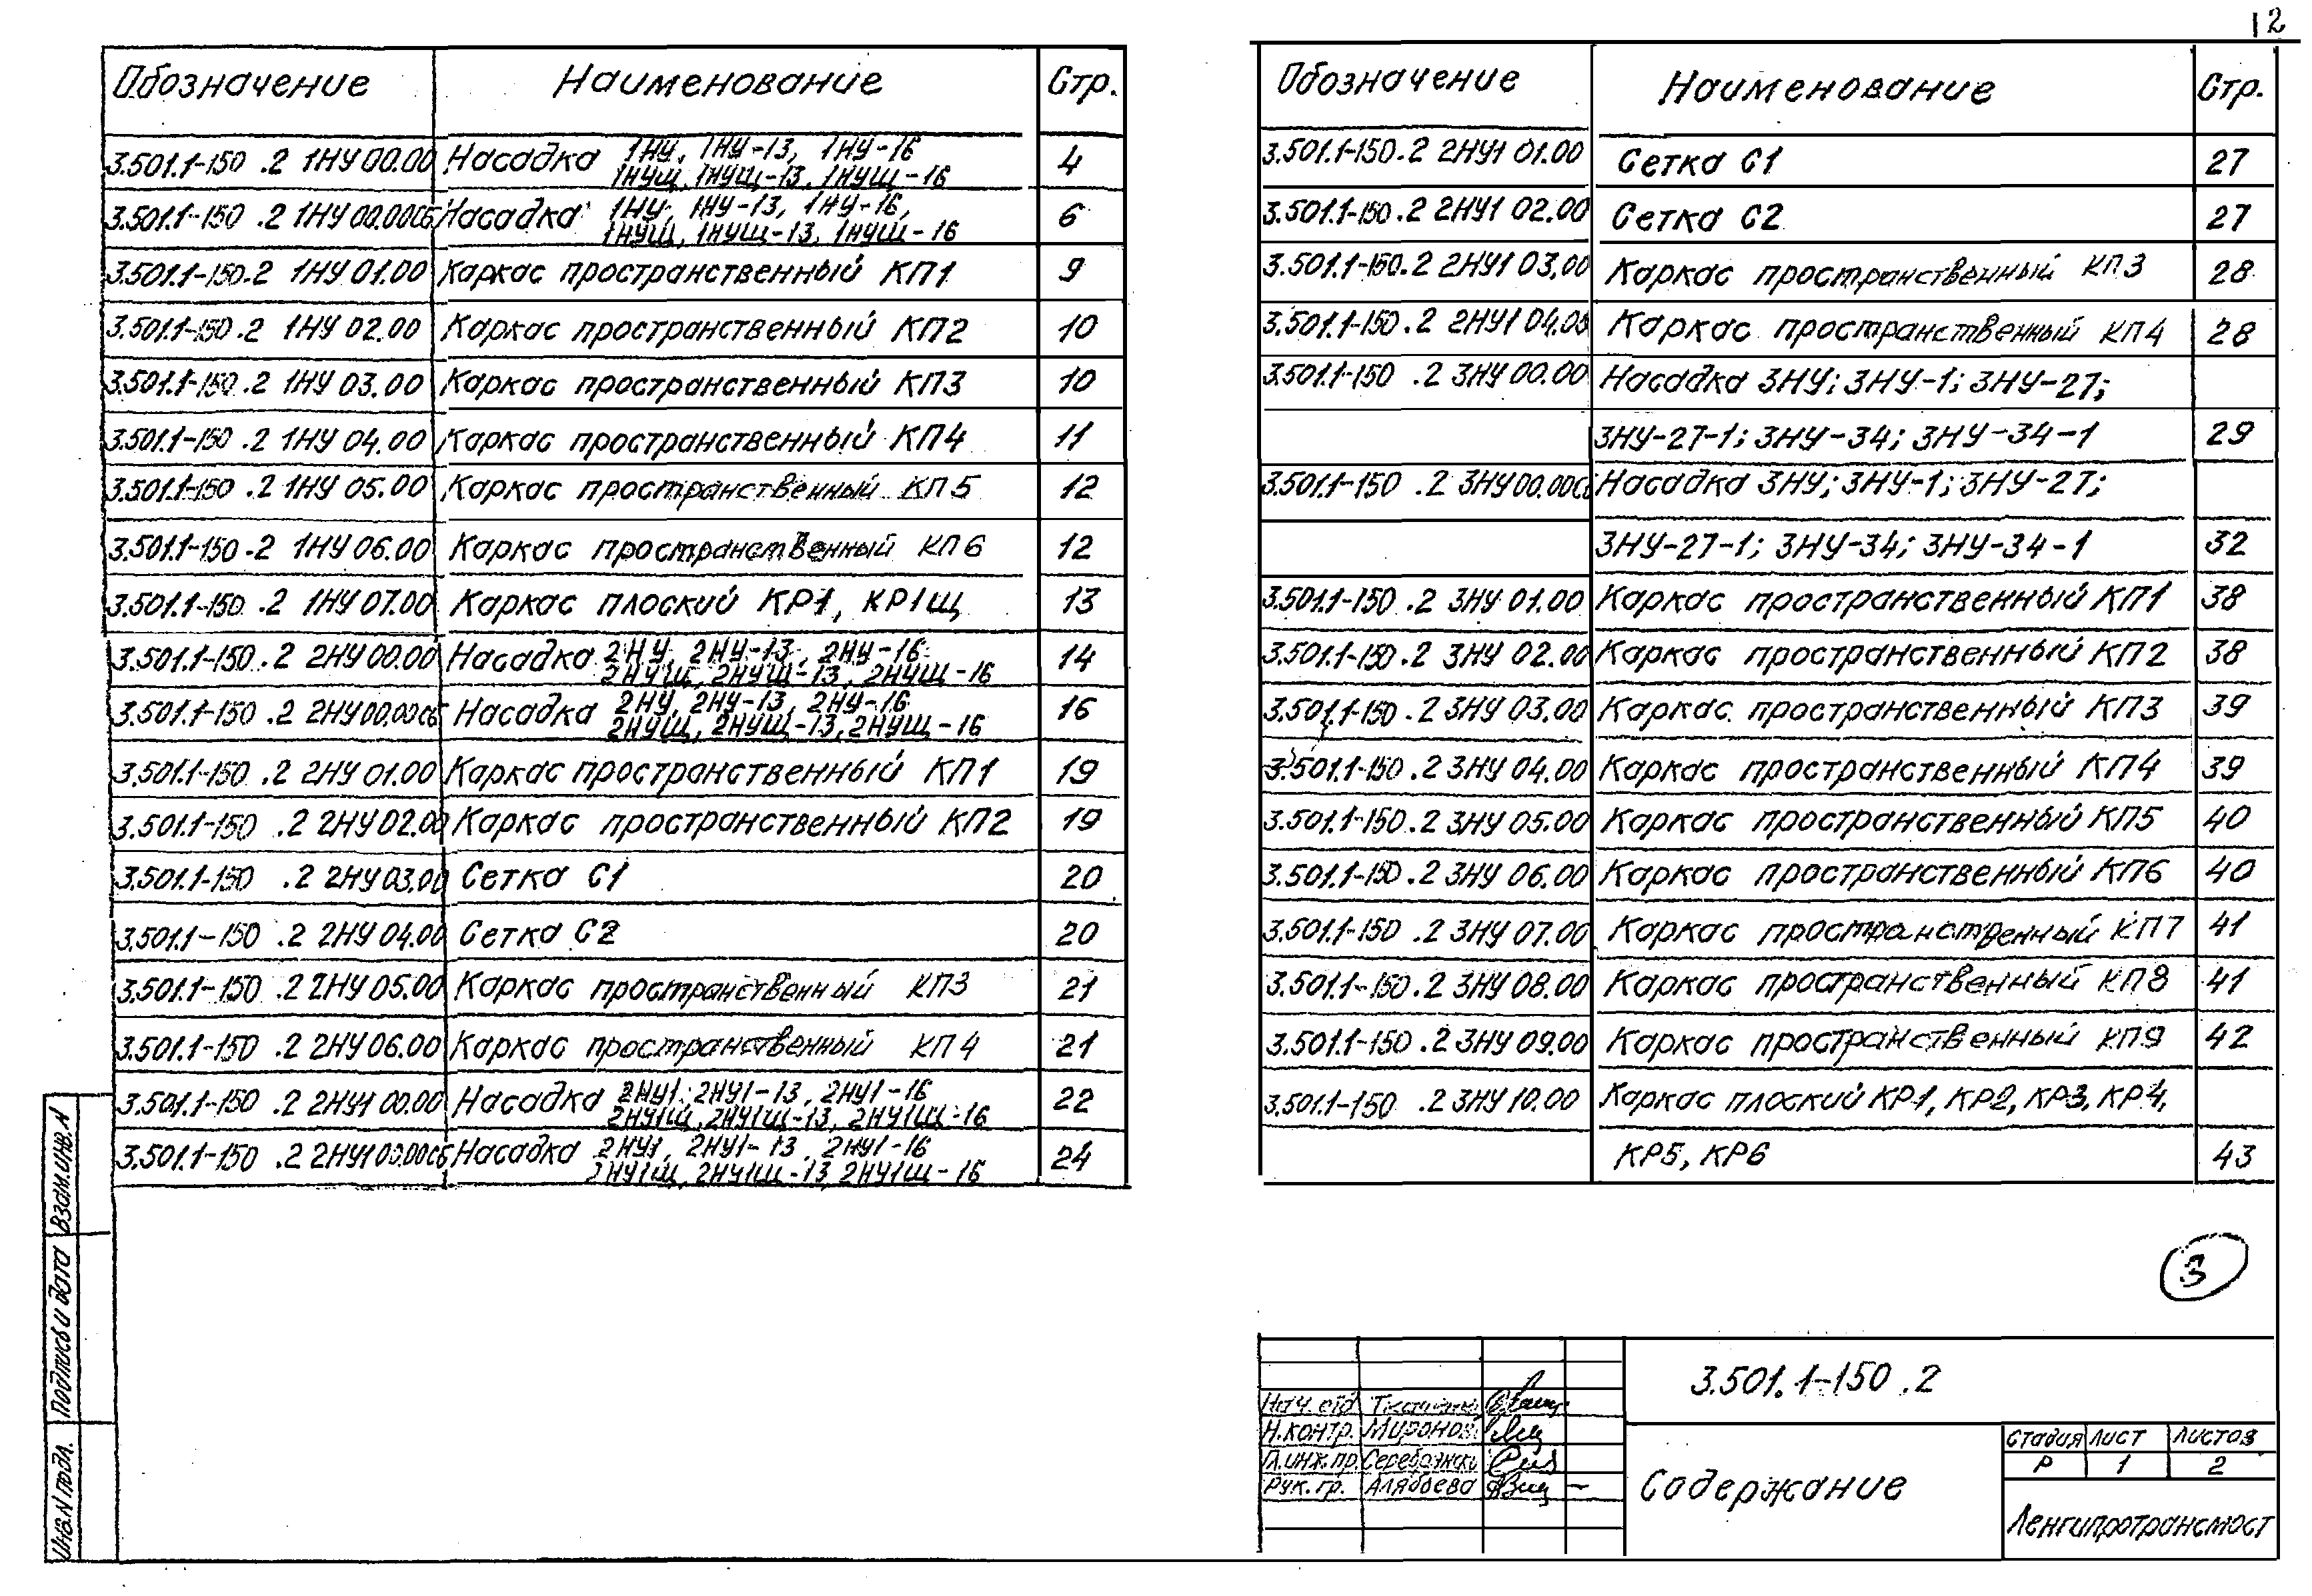 12
Обозначение Наименование Стр.
3.501.1-150 .2 1НУ 00.00 Насадка 1НУ, 1НУ-13, 1НУ-16
1НУЩ, 1НУЩ-13, 1НУЩ-16 4
3.501.1-150 .2 1НУ 00.00СБ Насадка 1НУ, 1НУ-13, 1НУ-16,
1НУЩ, 1НУЩ-13, 1НУЩ-16 6
3.501.1-150.2 1НУ 01.00 Каркас пространственный КП1 9
3.501.1-150.2 1НУ 02.00 Каркас пространственный КП2 10
3.501.1-150.2 1НУ 03.00 Каркас пространственный КП3 10
3.501.1-150 .2 1НУ 04.00 Каркас пространственный КП4 11
3.501.1-150 .2 1НУ 05.00 Каркас пространственный КП5 12
3.501.1-150.2 1НУ 06.00 Каркас пространственный КП6 12
3.501.1-150 .2 1НУ 07.00 Каркас плоский КР1, КР1Щ 13
3.501.1-150.2 2НУ 00.00 Насадка 2НУ, 2НУ-13, 2НУ-16
2НУЩ, 2НУЩ-13, 2НУЩ-16 14
3.501.1-150 .2 2НУ 00.00СБ Насадка 2НУ, 2НУ-13, 2НУ-16
2НУЩ, 2НУЩ-13, 2НУЩ-16 16
3.501.1-150 .2 2НУ 01.00 Каркас пространственный КП1 19
3.501.1-150 .2 2НУ 02.00 Каркас пространственный КП2 19
3.501.1-150 .2 2НУ 03.00 Сетка С1 20
3.501.1-150 .2 2НУ 04.00 Сетка С2 20
3.501.1-150 .2 2НУ 05.00 Каркас пространственный КП3 21
3.501.1-150 .2 2НУ 06.00 Каркас пространственный КП4 21
3.501.1-150 .2 2НУ1 00.00 Насадка 2НУ1, 2НУ1-13, 2НУ1-16
2НУ1Щ, 2НУ1Щ-13, 2НУ1Щ-16 22
3.501.1-150 .2 2НУ1 00.00СБ Насадка 2НУ1, 2НУ1-13, 2НУ1-16
2НУ1Щ, 2НУ1Щ-13, 2НУ1Щ-16 24
Обозначение Наименование Стр.
3.501.1-150.2 2НУ1 01.00 Сетка С1 27
3.501.1-150.2 2НУ1 02.00 Сетка С2 27
3.501.1-150.2 2НУ1 03.00 Каркас пространственный КП3 28
3.501.1-150.2 2НУ1 04.00 Каркас пространственный КП4 28
3.501.1-150 .2 3НУ 00.00 Насадка 3НУ; 3НУ-1; 3НУ-27;
3НУ-27-1; 3НУ-34; 3НУ-34-1 29
3.501.1-150 .2 3НУ 00.00СБ Насадка 3НУ; 3НУ-1; 3НУ-27;
3НУ-27-1; 3НУ-34; 3НУ-34-1 32
3.501.1-150 .2 3НУ 01.00 Каркас пространственный КП1 38
3.501.1-150.2 3НУ 02.00 Каркас пространственный КП2 38
3.501.1-150.2 3НУ 03.00 Каркас пространственный КП3 39
3.501.1-150.2 3НУ 04.00 Каркас пространственный КП4 39
3.501.1-150.2 3НУ 05.00 Каркас пространственный КП5 40
3.501.1-150.2 3НУ 06.00 Каркас пространственный КП6 40
3.501.1-150 .2 3НУ 07.00 Каркас пространственный КП7 41
3.501.1-150.2 3НУ 08.00 Каркас пространственный КП8 41
3.501.1-150.2 3НУ 09.00 Каркас пространственный КП9 42
3.501.1-150 .2 3НУ 10.00 Каркас плоский КР1, КР2, КР3, КР4,
КР5, КР6 43
3
3.501.1-150 .2
Нач. отд.
Н.контр. Миронов
Гл.инж.пр. Серебрянский
Рук.гр. Алябьева
Содержание
Стадия Лист Листов
Р 1 2
Ленгипротрансмост
Взам.инв.N
Подпись и дата
Инв.N подл.